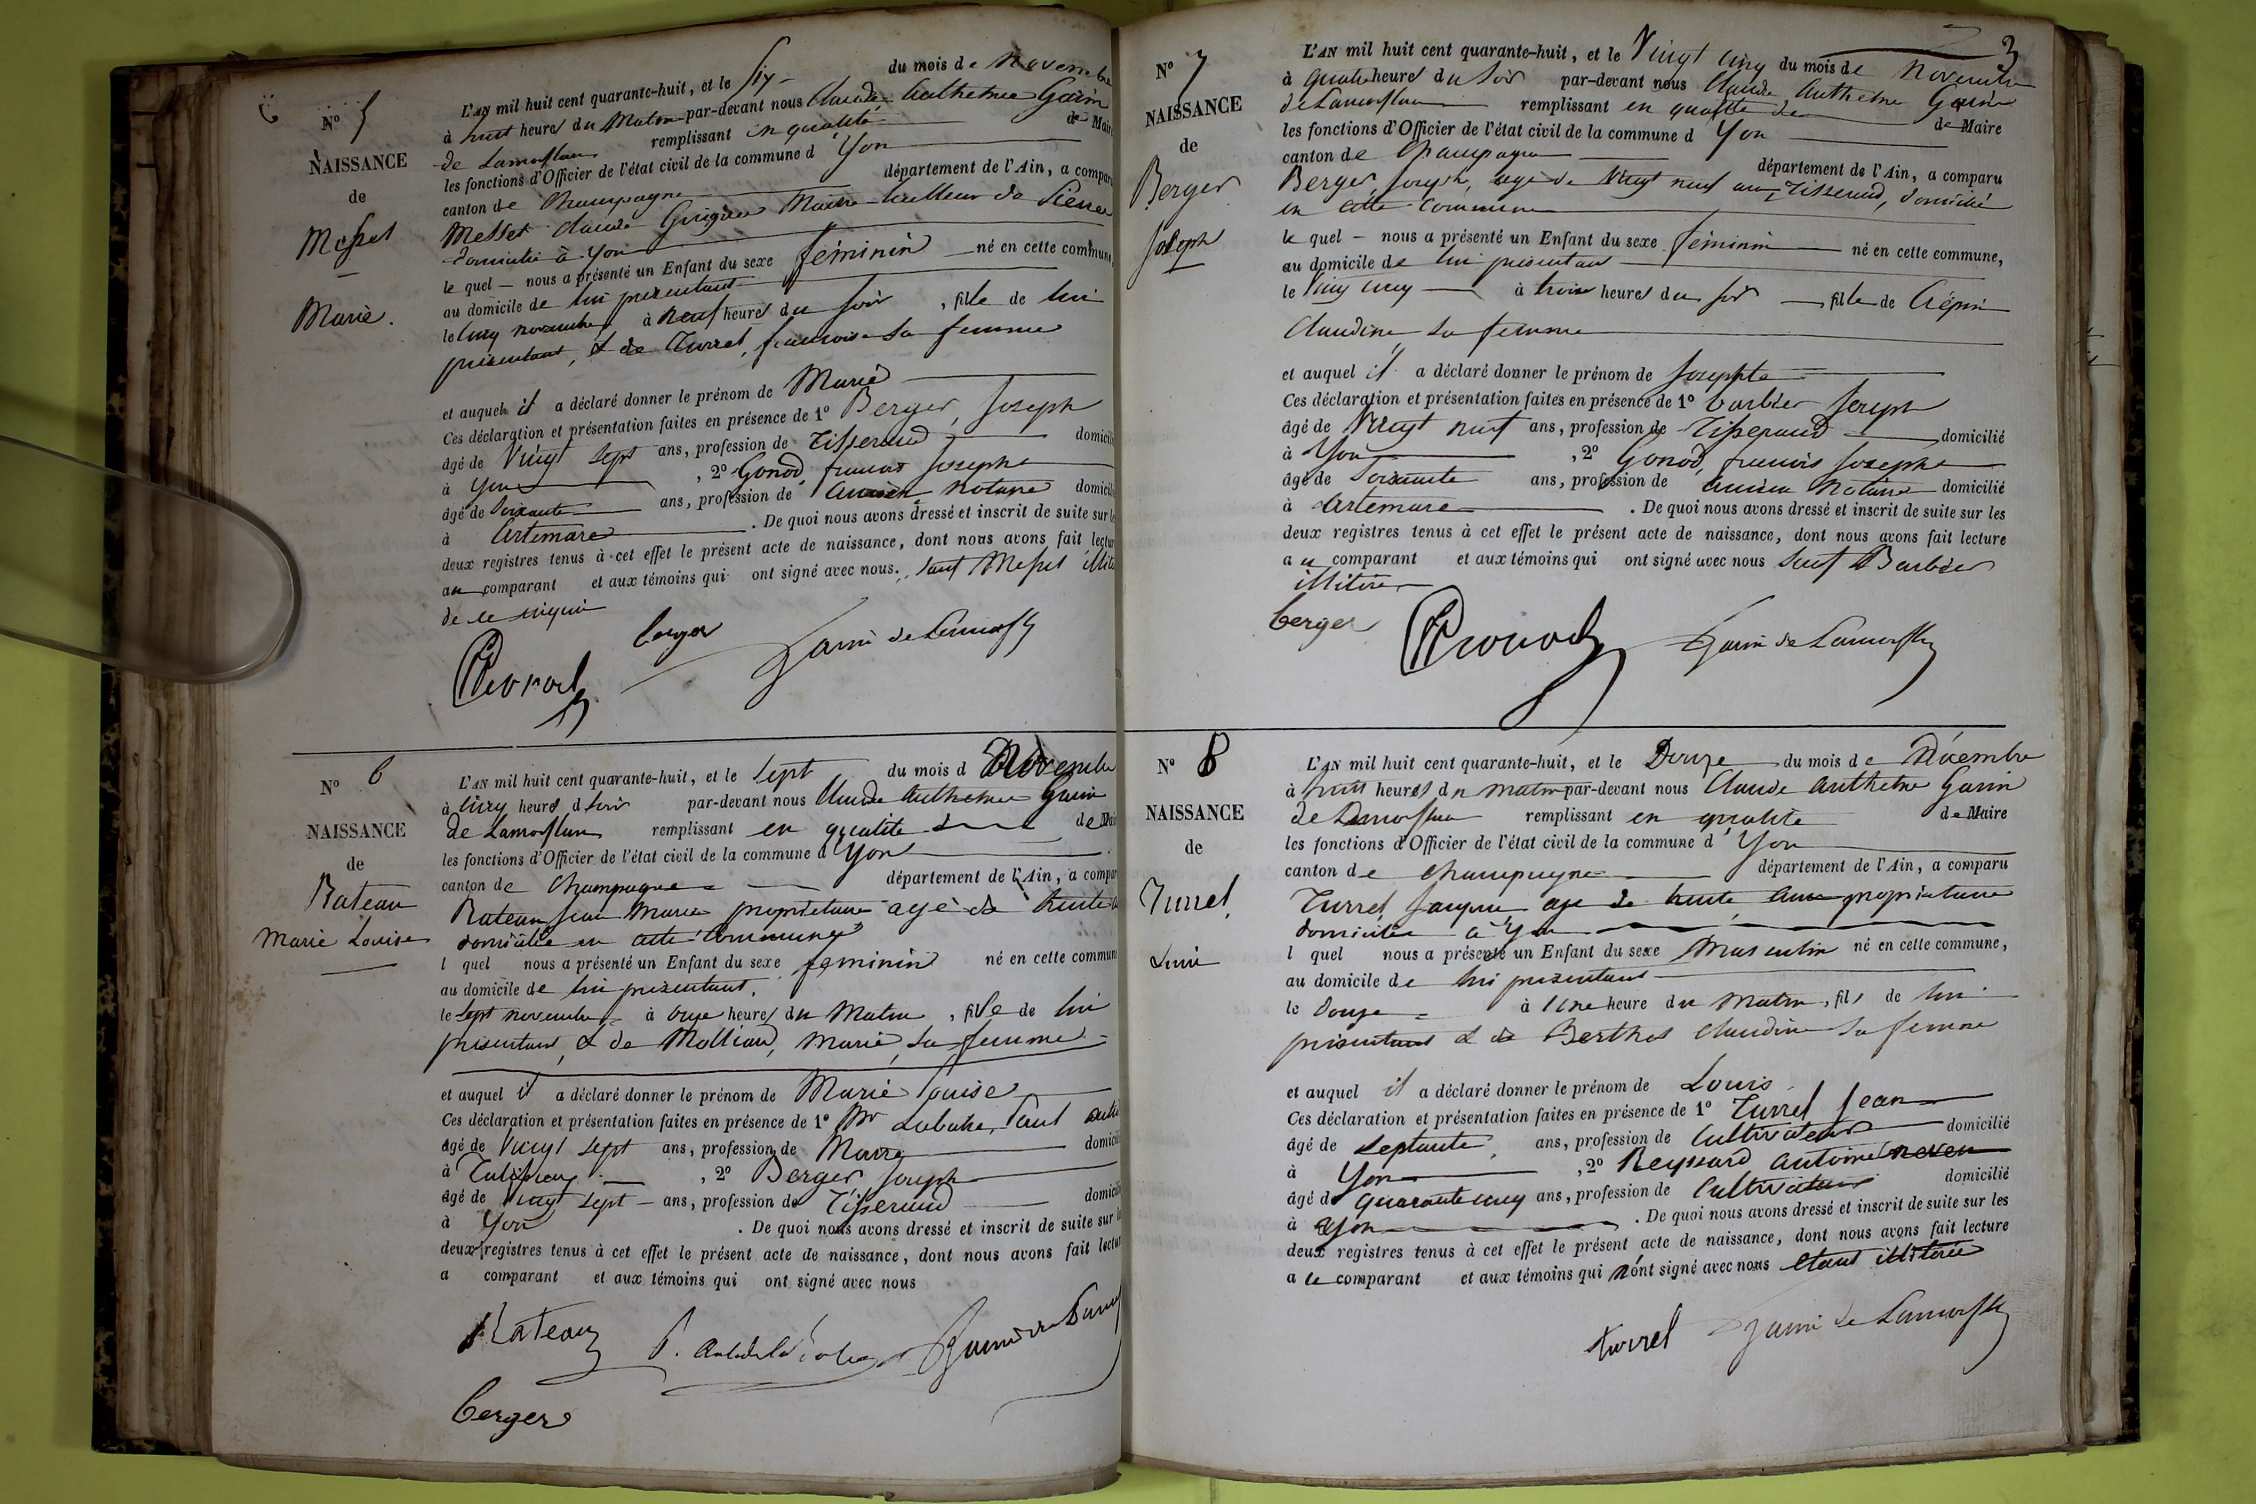 N° 5
NAISSANCE
de
Messet
Marie.
L'AN mil huit cent quarante-huit, et le Six du mois de Novembre
à huit heures du Matin par-devant nous Claude Anthelme Garin
de Lamorflan remplissant en qualité de Maire
les fonctions d'Officier de l'état civil de la commune d Yon
canton de Champagne département de l'Ain, a comparu
Messet Claude tailleur de Pierre
domicilié à Yon
le quel — nous a présenté un Enfant du sexe féminin né en cette commune,
au domicile de lui présentant
le cinq novembre à neuf heures du soir, fille de lui
présentant, & de Turrel, françoise sa femme
et auquel il a déclaré donner le prénom de Marie
Ces déclaration et présentation faites en présence de 1° Berger, Joseph
âgé de Vingt sept ans, profession de Tisserand domicilié
à Yon, 2° Gonod, françois Josephe
âgé de soixante ans, profession de ancien notaire domicilié
à Artemare. De quoi nous avons dressé et inscrit de suite sur les
deux registres tenus à cet effet le présent acte de naissance, dont nous avons fait lecture
au comparant et aux témoins qui ont signé avec nous. sauf Messet illité
de ce requis
berger Garin de Lamorfl
Gonod
N° 6
NAISSANCE
de
Rateau
Marie Louise
L'AN mil huit cent quarante-huit, et le Sept du mois d Novembre
à cinq heures d soir par-devant nous Claude Anthelme Garin
de Lamorflan remplissant en qualité de Maire
les fonctions d'Officier de l'état civil de la commune d Yon
canton de Champagne département de l'Ain, a comparu
Rateau Jean Marie propriétaire agé de trente
domicilié en cette commune
l quel nous a présenté un Enfant du sexe féminin né en cette commune
au domicile de lui présentant,
le sept novembre à onze heures du Matin, fille de lui
présentant, & de Molliand, Marie, sa femme
et auquel il a déclaré donner le prénom de Marie Louise
Ces déclaration et présentation faites en présence de 1° Mr Paul
âgé de Vingt sept ans, profession de Maire domicilié
à , 2° Berger Joseph
âgé de Vingt sept — ans, profession de Tisserand domicilié
à Yon. De quoi nous avons dressé et inscrit de suite sur les
deux registres tenus à cet effet le présent acte de naissance, dont nous avons fait lecture
a comparant et aux témoins qui ont signé avec nous
Rateau Garin de Lamor
berger
3
N° 7
NAISSANCE
de
Berger
Joseph
L'AN mil huit cent quarante-huit, et le Vingt cinq du mois de Novembre
à quatre heures du soir par-devant nous Claude Anthelme Garin
de Lamorflan remplissant en qualité de Maire
les fonctions d'Officier de l'état civil de la commune d Yon
canton de Champagne département de l'Ain, a comparu
Berger, Joseph, agé de Vingt neuf ans, Tisserand, domicilié
en cette commune
le quel — nous a présenté un Enfant du sexe féminin né en cette commune,
au domicile de lui présentant
le Vingt cinq à trois heures du soir, fille de Crépin
Claudine, sa femme
et auquel il a déclaré donner le prénom de Josephte
Ces déclaration et présentation faites en présence de 1° barbier Joseph
âgé de Vingt neuf ans, profession de Tisserand domicilié
à Yon, 2° Gonod, françois Josephe
âgé de soixante ans, profession de ancien Notaire domicilié
à Artemare. De quoi nous avons dressé et inscrit de suite sur les
deux registres tenus à cet effet le présent acte de naissance, dont nous avons fait lecture
au comparant et aux témoins qui ont signé avec nous sauf Barbier
illitéré
berger Gonod Garin de Lamorfl
N° 8
NAISSANCE
de
Turrel,
Louis
L'AN mil huit cent quarante-huit, et le Douze du mois de Décembre
à huit heures du matin par-devant nous Claude Anthelme Garin
de Lamorflan remplissant en qualité de Maire
les fonctions d'Officier de l'état civil de la commune d Yon
canton de Champagne département de l'Ain, a comparu
Turrel, Jacques agé de trente ans propriétaire
domicilié à Yon
l quel nous a présenté un Enfant du sexe Masculin né en cette commune,
au domicile de lui présentant
le douze à une heure du Matin, fils de lui
présentant & de Berthet Claudine sa femme
et auquel il a déclaré donner le prénom de Louis
Ces déclaration et présentation faites en présence de 1° Turrel Jean
âgé de septante, ans, profession de Cultivateur domicilié
à Yon, 2° Reyssard Antoine neveu
âgé de quarante cinq ans, profession de Cultivateur domicilié
à Yon. De quoi nous avons dressé et inscrit de suite sur les
deux registres tenus à cet effet le présent acte de naissance, dont nous avons fait lecture
a le comparant et aux témoins qui n'ont signé avec nous étant illitérés
turrel Garin de Lamorfl